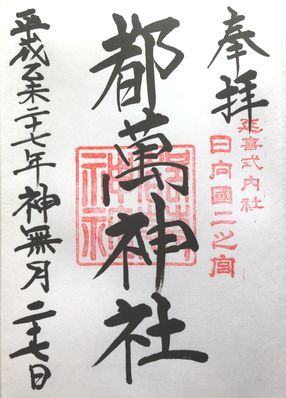 奉拝
延喜式内社
日向國二之宮
都萬神社
平成乙未二十七年神無月二十七日